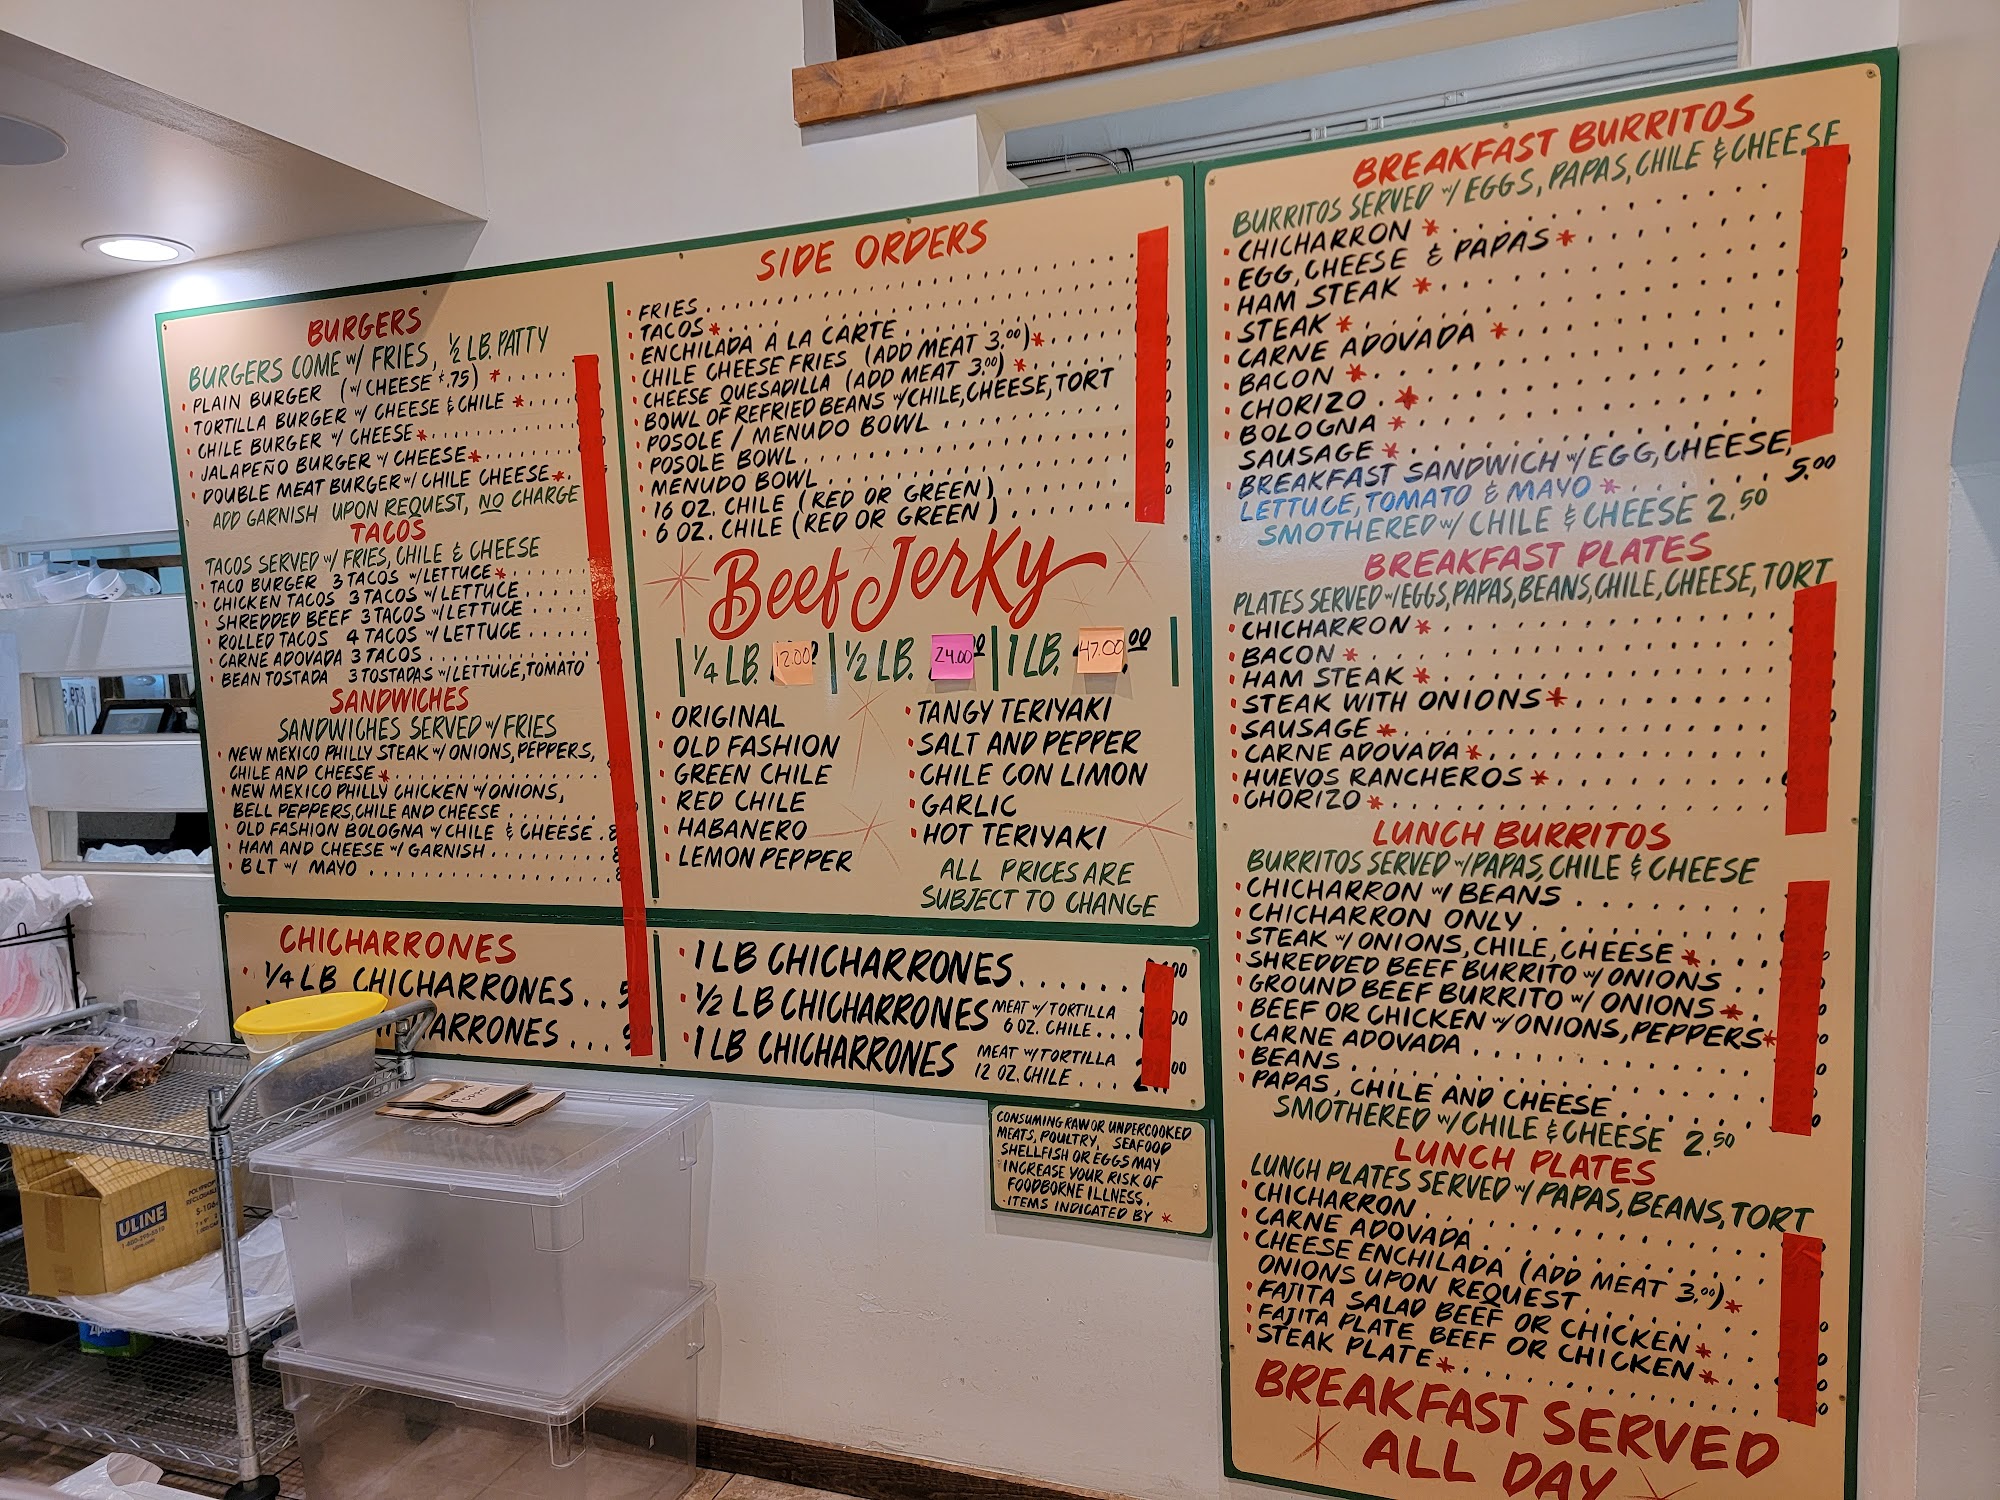 BURGERS
BURGERS COME W/ FRIES, ½ LB. PATTY
PLAIN BURGER (W/ CHEESE $.75) *
TORTILLA BURGER W/ CHEESE & CHILE *
CHILE BURGER W/ CHEESE *
JALAPEÑO BURGER W/ CHEESE *
DOUBLE MEAT BURGER W/ CHILE CHEESE *
ADD GARNISH UPON REQUEST, NO CHARGE
TACOS
TACOS SERVED W/ FRIES, CHILE & CHEESE
TACO BURGER 3 TACOS W/ LETTUCE *
CHICKEN TACOS 3 TACOS W/ LETTUCE
SHREDDED BEEF 3 TACOS W/ LETTUCE
ROLLED TACOS 4 TACOS W/ LETTUCE
CARNE ADOVADA 3 TACOS
BEAN TOSTADA 3 TOSTADAS W/ LETTUCE, TOMATO
SANDWICHES
SANDWICHES SERVED W/ FRIES
NEW MEXICO PHILLY STEAK W/ ONIONS, PEPPERS,
CHILE AND CHEESE *
NEW MEXICO PHILLY CHICKEN W/ ONIONS,
BELL PEPPERS, CHILE AND CHEESE
OLD FASHION BOLOGNA W/ CHILE & CHEESE
HAM AND CHEESE W/ GARNISH
BLT W/ MAYO
SIDE ORDERS
FRIES
TACOS *
ENCHILADA A LA CARTE
CHILE CHEESE FRIES (ADD MEAT 3.00) *
CHEESE QUESADILLA (ADD MEAT 3.00) *
BOWL OF REFRIED BEANS W/ CHILE, CHEESE, TORT
POSOLE / MENUDO BOWL
POSOLE BOWL
MENUDO BOWL
16 OZ. CHILE (RED OR GREEN)
6 OZ. CHILE (RED OR GREEN)
Beef Jerky
¼ LB. 12.00 ½ LB. 24.00 1 LB. 47.00
ORIGINAL
OLD FASHION
GREEN CHILE
RED CHILE
HABANERO
LEMON PEPPER
TANGY TERIYAKI
SALT AND PEPPER
CHILE CON LIMON
GARLIC
HOT TERIYAKI
ALL PRICES ARE
SUBJECT TO CHANGE
CHICHARRONES
¼ LB CHICHARRONES
CHARRONES
1 LB CHICHARRONES
½ LB CHICHARRONES MEAT W/ TORTILLA
6 OZ. CHILE
1 LB CHICHARRONES MEAT W/ TORTILLA
12 OZ. CHILE
CONSUMING RAW OR UNDERCOOKED
MEATS, POULTRY, SEAFOOD
SHELLFISH OR EGGS MAY
INCREASE YOUR RISK OF
FOODBORNE ILLNESS,
ITEMS INDICATED BY *
BREAKFAST BURRITOS
BURRITOS SERVED W/ EGGS, PAPAS, CHILE & CHEESE
CHICHARRON *
EGG, CHEESE & PAPAS *
HAM STEAK *
STEAK *
CARNE ADOVADA *
BACON *
CHORIZO *
BOLOGNA *
SAUSAGE *
BREAKFAST SANDWICH W/ EGG, CHEESE,
LETTUCE, TOMATO & MAYO * 5.00
SMOTHERED W/ CHILE & CHEESE 2.50
BREAKFAST PLATES
PLATES SERVED W/ EGGS, PAPAS, BEANS, CHILE, CHEESE, TORT
CHICHARRON *
BACON *
HAM STEAK *
STEAK WITH ONIONS *
SAUSAGE *
CARNE ADOVADA *
HUEVOS RANCHEROS *
CHORIZO *
LUNCH BURRITOS
BURRITOS SERVED W/ PAPAS, CHILE & CHEESE
CHICHARRON W/ BEANS
CHICHARRON ONLY
STEAK W/ ONIONS, CHILE, CHEESE *
SHREDDED BEEF BURRITO W/ ONIONS
GROUND BEEF BURRITO W/ ONIONS *
BEEF OR CHICKEN W/ ONIONS, PEPPERS *
CARNE ADOVADA
BEANS
PAPAS, CHILE AND CHEESE
SMOTHERED W/ CHILE & CHEESE 2.50
LUNCH PLATES
LUNCH PLATES SERVED W/ PAPAS, BEANS, TORT
CHICHARRON
CARNE ADOVADA
CHEESE ENCHILADA (ADD MEAT 3.00) *
ONIONS UPON REQUEST
FAJITA SALAD BEEF OR CHICKEN *
FAJITA PLATE BEEF OR CHICKEN *
STEAK PLATE *
BREAKFAST SERVED
ALL DAY
ULINE